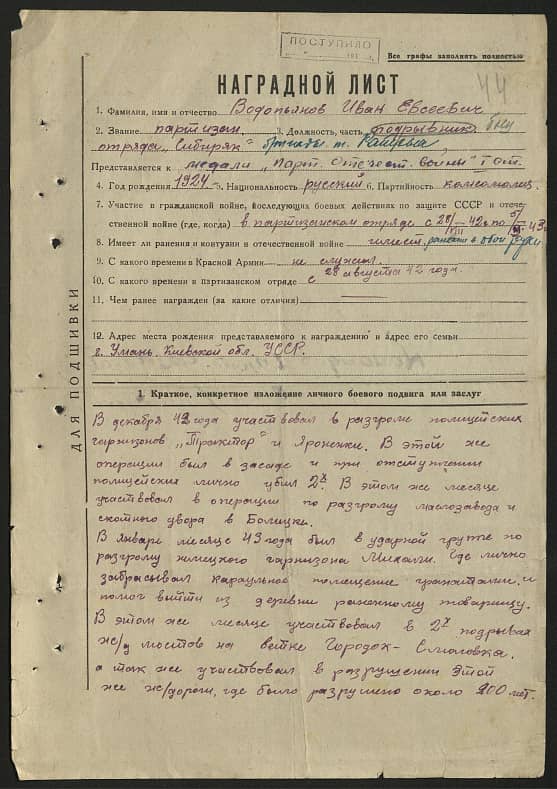 ПОСТУПИЛО
Все графы заполнять полностью
44
НАГРАДНОЙ ЛИСТ
1. Фамилия, имя и отчество Водопьянов Иван Евсеевич
2. Звание партизан 3. Должность, часть подрывник
отряда "Сибиряк" бригады т.
Представляется к медали "Парт. Отечест. войны" I ст.
4. Год рождения 1924 5. Национальность русский 6. Партийность комсомолец.
7. Участие в гражданской войне, последующих боевых действиях по защите СССР и отече-
ственной войне (где, когда) в партизанском отряде с 28/VIII 42г по
8. Имеет ли ранения и контузии в отечественной войне имеет, ранен в обои руки
9. С какого времени в Красной Армии не служил.
10. С какого времени в партизанском отряде с 28 августа 42 года.
11. Чем ранее награжден (за какие отличия)
12. Адрес места рождения представляемого к награждению и адрес его семьи
г. Умань. Киевской обл. УССР.
ДЛЯ ПОДШИВКИ
1. Краткое, конкретное изложение личного боевого подвига или заслуг
В декабря 42 года участвовал в разгроме полицейских
гарнизонов "Трактор" и Яроненки. В этой же
операции был в засаде и при отступлении
полицейских лично убил 2х. В этом же месяце
участвовал в операции по разгрому маслозавода и
скотного двора в
В январе месяце 43 года был в ударной группе по
разгрому немецкого гарнизона Михали. Где лично
забрасывал караульное помещение гранатами, и
помог выйти из деревни раненному товарищу.
В этом же месяце участвовал в 2х подрывах
ж/д мостов на ветке Городок-Смоловка.
а так же участвовал в разрушении этой
же ж/дороги, где было разрушено около 200 мет.